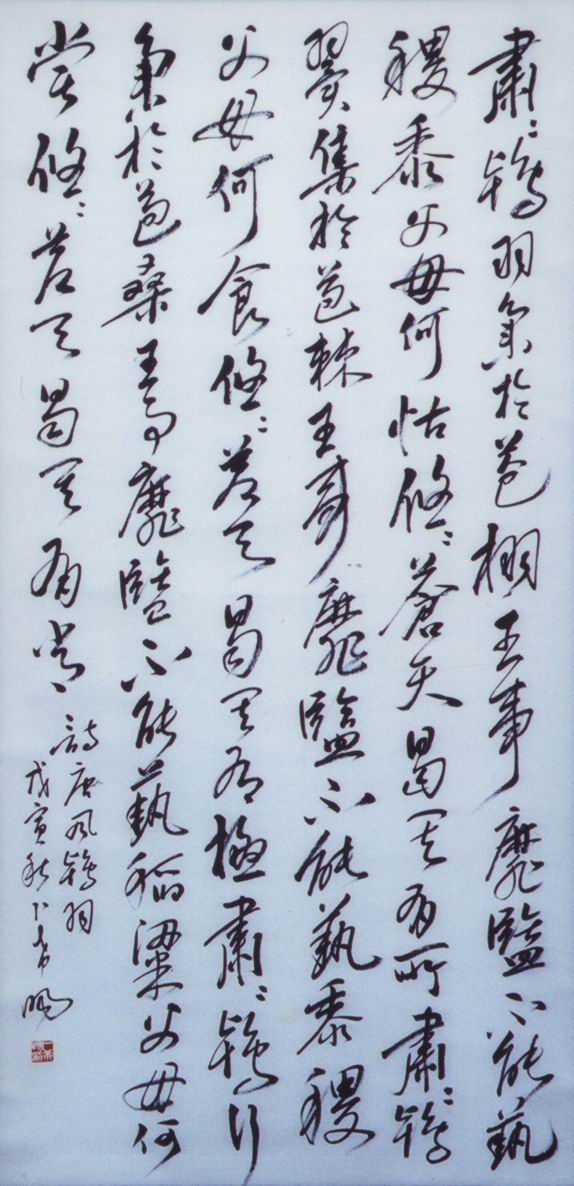 肅〻鴇羽集於苞栩王事靡盬不能藝
稷黍父母何怙悠〻蒼天曷其有所肅〻鴇
翼集於苞棘王事靡盬不能藝黍稷
父母何食悠〻蒼天曷其有極肅〻鴇行
集於苞桑王事靡盬不能藝稻粱父母何
嘗悠〻蒼天曷其有常
詩唐風鴇羽
戊寅秋卜希暘